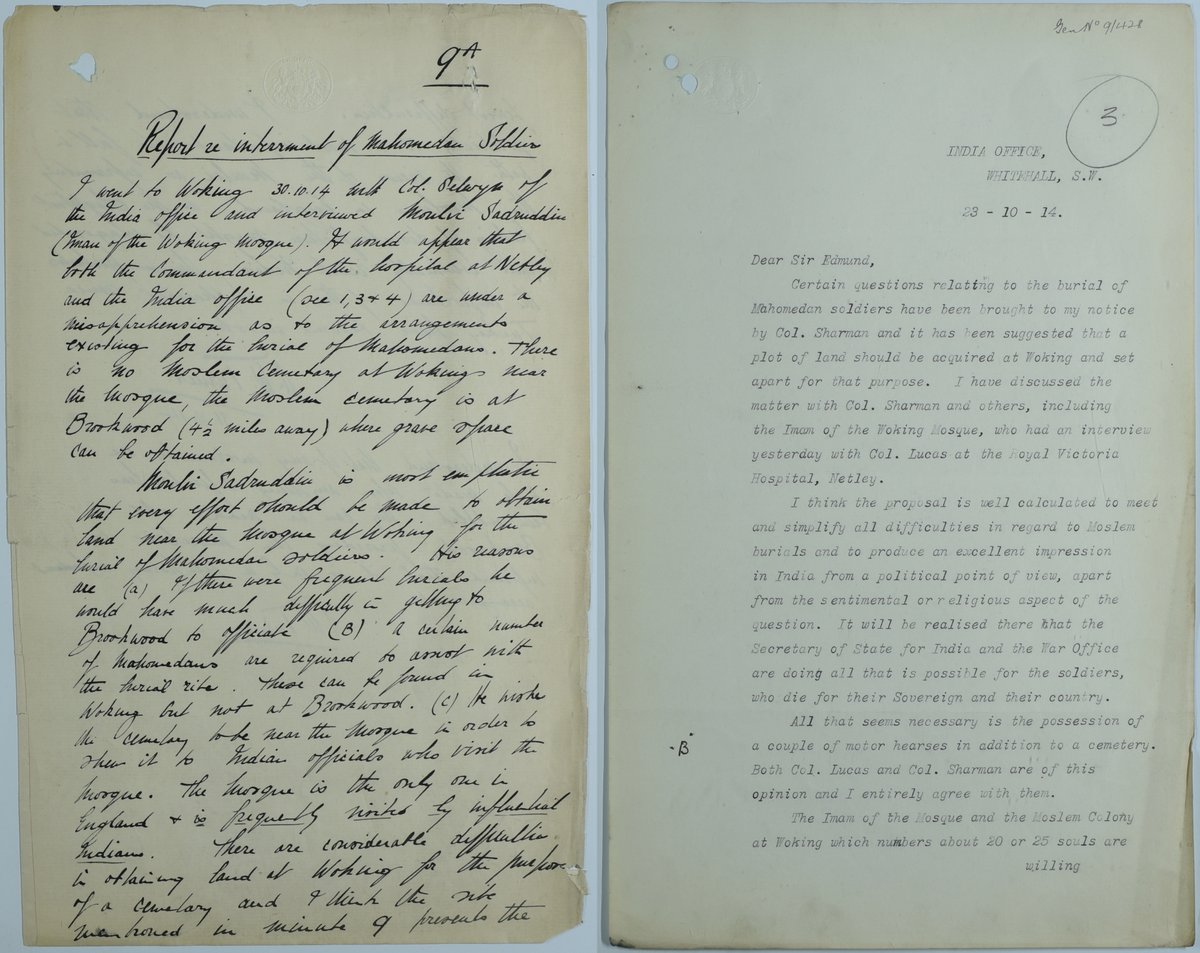 9A
Report re interrment of Mahomedan Soldier
I went to Woking 30.10.14 with Col. Selwyn of
the India office and interviewed Moulvi Sadruddin
(Iman of the Woking Mosque). It would appear that
both the Commandant of the hospital at Netley
and the India office (see 1, 3 & 4) are under a
misapprehension as to the arrangements
existing for the burial of Mahomedans. There
is no Moslem Cemetary at Woking near
the Mosque, the Moslem cemetary is at
Brookwood (4½ miles away) where grave space
can be obtained.
Moulvi Sadruddin is most emphatic
that every effort should be made to obtain
land near the Mosque at Woking for the
burial of Mahomedan soldiers. His reasons
are (a) If there were frequent burials he
would have much difficulty in getting to
Brookwood to officiate (B) a certain number
of Mahomedans are required to assist with
the burial rite. These can be found in
Woking but not at Brookwood. (C) He wishes
the cemetary to be near the Mosque in order to
shew it to Indian officials who visit the
Mosque. The Mosque is the only one in
England & is frequently visited by influential
Indians. There are considerable difficulties
in obtaining land at Woking for the purpose
of a cemetary and I think the site
mentioned in minute 9 presents the
Gen No 9/428
3
INDIA OFFICE,
WHITEHALL, S.W.
23 - 10 - 14.
Dear Sir Edmund,
Certain questions relating to the burial of
Mahomedan soldiers have been brought to my notice
by Col. Sharman and it has been suggested that a
plot of land should be acquired at Woking and set
apart for that purpose. I have discussed the
matter with Col. Sharman and others, including
the Imam of the Woking Mosque, who had an interview
yesterday with Col. Lucas at the Royal Victoria
Hospital, Netley.
I think the proposal is well calculated to meet
and simplify all difficulties in regard to Moslem
burials and to produce an excellent impression
in India from a political point of view, apart
from the sentimental or religious aspect of the
question. It will be realised there that the
Secretary of State for India and the War Office
are doing all that is possible for the soldiers,
who die for their Sovereign and their country.
All that seems necessary is the possession of
"B" a couple of motor hearses in addition to a cemetery.
Both Col. Lucas and Col. Sharman are of this
opinion and I entirely agree with them.
The Imam of the Mosque and the Moslem Colony
at Woking which numbers about 20 or 25 souls are
willing